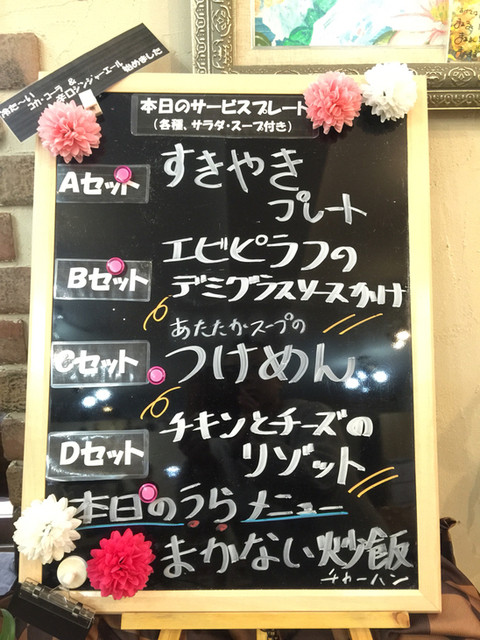 冷た〜い
コカ・コーラ &
辛口ジンジャーエール
始めました
本日のサービスプレート
(各種、サラダ・スープ付き)
Aセット
すきやき
プレート
Bセット
エビピラフの
デミグラスソースかけ
Cセット
あたたかスープの
つけめん
Dセット
チキンとチーズの
リゾット
本日のうらメニュー
まかない炒飯
チャーハン